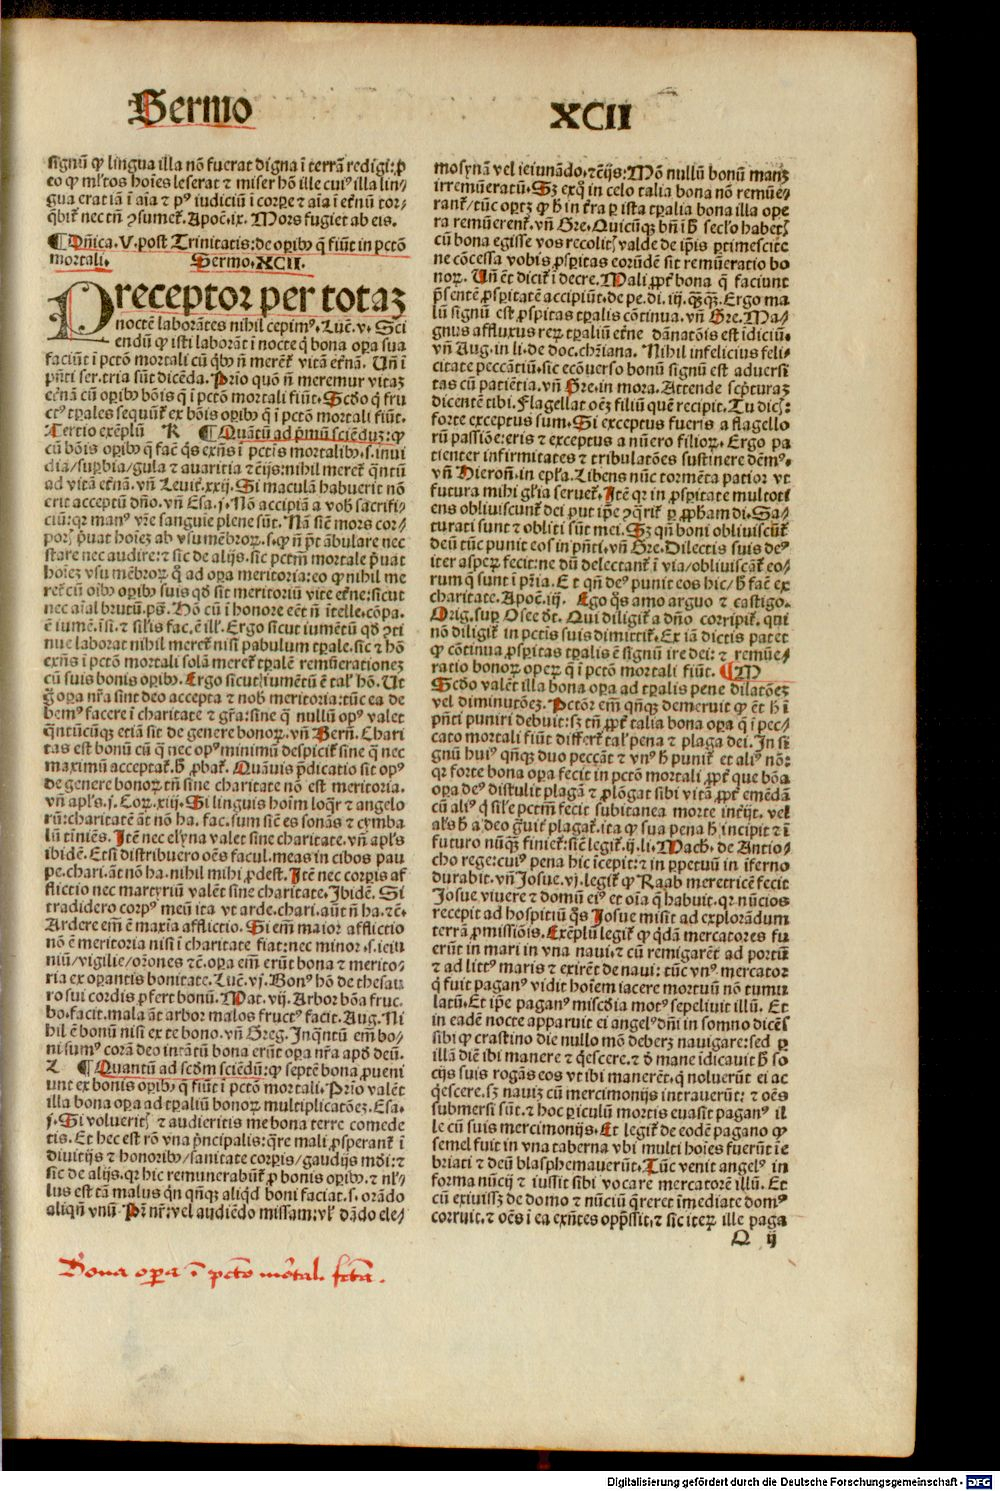 Sermo
XCII
signū qp lingua illa nō fuerat digna ī terrā redigi: ꝓ
eo qp ml'tos hoīes leserat ⁊ miser hō ille cuiꝰ illa lin⸗
gua erat iā ī aīa ⁊ pꝰ iudiciū ī corꝑe ⁊ aīa ī etnū tor⸗
nec tn̄ ꝯsumet̄. Apoc̄. ix. Mors fugiet ab eis.
¶ Dn̄ica. V. post Trinitatis: de oꝑibꝰ q̄ fiūt in pctō
mortali. Sermo. XCII.
Preceptor per totaꝫ
noctē laborātes nihil cepimꝰ. Luc̄. v. Sci
endū qp isti laborāt ī nocte q̄ bona oꝑa sua
faciūt ī pctō mortali cū q̄bꝰ nō merent̄ vitā etnā. Un̄ ī
pn̄ti ser. tria sūt dicēda. Prīo quō nō meremur vitaꝫ
etnā cū oꝑibꝰ bōis q̄ ī pctō mortali fiūt. Scdo q̄ fru
ctꝰ tꝑales sequūt̄ ex bōis oꝑibꝰ q̄ ī pctō mortali fiūt.
Tertio exēplū K ¶ Quātū ad pmū sciēduꝫ: qp
cū bōis oꝑibꝰ q̄ fac̄ q̄s exn̄s ī pctīs mortalibꝰ. s. inui
dia/suꝑbia/gula ⁊ auaritia ⁊ c̄ijs: nihil meret̄ q̄ntū
ad vitā etnā. vn̄ Leuit̄. xxij. Si maculā habuerit nō
erit acceptū dn̄o. vn̄ Esa. j. Nō accipiā a vob̄ sacrifi⸗
ciū: qꝛ manꝰ vr̄e sanguīe plene sūt. Nā sic̄ mors cor⸗
poris pͥuat hoīez ab vsu mēbroꝝ. s. qp nō pt̄ ābulare nec
stare nec audire: ⁊ sic de alijs. sic pctm̄ mortale pͥuat
hoīez vsu mēbroꝝ q̄ ad oꝑa meritoria: eo qp nihil me
ret̄ cū oībꝰ oꝑibꝰ suis qd̄ sit meritoriū vite etne: sicut
nec aīal brutū. ps̄. Hō cū ī honore eēt nō ītelle. cōpa.
ē iumē. īsi. ⁊ sil'is fac. ē ill'. Ergo sicut iumētū qd̄ ꝯti
nue laborat nihil meret̄ nisi pabulum tꝑale. sic ⁊ hō
exn̄s ī pctō mortali solā meret̄ tꝑalē remūerationez
cū suis bonis oꝑibꝰ. Ergo sicut iumētū ē tal' hō. Ut
oꝑa nr̄a sint deo accepta ⁊ nob̄ meritoria: tūc ea de
bemꝰ facere ī charitate ⁊ gr̄a: sine q̄ nullū opꝰ valet
q̄ntūcūqꝫ etiā sit de genere bonoꝝ. vn̄ Bern̄. Chari
tas est bonū cū q̄ nec opꝰ minimū despicit̄ sine q̄ nec
maximū acceptat̄. h̄ ꝓbat̄. Quāuis pdicatio sit opꝰ
de genere bonoꝝ. tn̄ sine charitate nō est meritoria.
vn̄ apl's. j. Coꝝ. xiij. Si linguis hoīm loqr̄ ⁊ angelo
rū: charitatē āt nō ha. fac. sum sic̄ es sonās ⁊ cymba
lū tīniēs. Itē nec elyna valet sine charitate. vn̄ apl's
ibidē. Etsi distribuero oēs facul. meas in cibos pau
pe. chari. āt nō ha. nihil mihi ꝓdest. Itē nec corꝑis af
flictio nec martyriū valēt sine charitate. Ibidē. Si
tradidero corpꝰ meū ita vt arde. chari. aūt nō ha. ⁊c̄.
Ardere em̄ ē maxīa afflictio. Si em̄ maior afflictio
nō ē meritoria nisi ī charitate fiat: nec minor. s. ieiu
niū/vigilie/orōnes ⁊c̄. oꝑa em̄ erūt bona ⁊ merito⸗
ria ex oꝑantis bonitate. Luc̄. vj. Bonꝰ hō de thesau
ro sui cordis ꝓfert bonū. Mat. vij. Arbor bōa fruc.
bo. facit. mala āt arbor malos fructꝰ facit. Aug. Ni
hil ē bonū nisi ex te bono. vn̄ Greg. Inq̄ntū em̄ bo⸗
ni sumꝰ corā deo intātū bona erūt oꝑa nr̄a apd̄ deū.
L ¶ Quantū ad scdm sciēdū: qp septē bona ꝓueni
unt ex bonis oꝑibꝰ q̄ fiūt ī pctō mortali. Prīo valēt
illa bona oꝑa ad tꝑaliū bonoꝝ multiplicatōez. Esa.
j. Si volueritis ⁊ audieritis me bona terre comede
tis. Et hec est rō vna pͥncipalis: q̄re mali ꝓsperant̄ ī
diuitijs ⁊ honoribꝰ/sanitate corꝑis/gaudijs mūdi: ⁊
sic de alijs. qꝛ hic remunerabūt̄ ꝓ bonis oꝑibꝰ. ⁊ nl'
lus est tā malus qn̄ qn̄qꝫ aliqd boni faciat. s. orādo
aliqn̄ vnū. Pr̄ nr̄: vel audiēdo missam: vl' dādo ele⸗
Bona opera ī pcto mortal. fcta.
mosynā vel ieiunādo. ⁊ c̄ijs: Nō nullū bonū manꝫ
irremūeratū. Sꝫ exq̄ in celo talia bona nō remūe⸗
rant̄/tūc oꝑtꝫ qp h̄ in tr̄a ꝑ ista tꝑalia bona illa ope
ra remūerent̄. vn̄ Gre. Quicūqꝫ bn̄ ī h̄ sclo habetis
cū bona egisse vos recolitis valde de ipīs ꝑtimescite
ne cōcessa vobis ꝓspitas eorūdē sit remūeratio bo
noꝝ. Un̄ et dicit̄ ī decre. Mali ꝓpt̄ bona q̄ faciunt
pͥsentē ꝓspitatē accipiūt. de pe. di. iij. qꝫqꝫ. Ergo ma
lū signū est ꝓspitas tꝑalis cōtinua. vn̄ Gre. Ma⸗
gnus affluxus reꝝ tꝑaliū etne dānatōis est īdiciū.
vn̄ Aug. in li. de doc. chr̄iana. Nihil infelicius feli⸗
citate peccātiū. sic ecōuerso bonū signū est aduersi
tas cū patiētia. vn̄ Gre. in mora. Attende scpturaꝫ
dicentē tibi. Flagellat oēꝫ filiū quē recipit. Tu dicis:
forte exceptus sum. Si exceptus fueris a flagello
rū passiōe: eris ⁊ exceptus a nūero filioꝝ. Ergo pa
tienter infirmitates ⁊ tribulatōes sustinere dēmꝰ.
vn̄ Hieron̄. in epl'a. Libens nūc tormēta patior vt
futura mihi gl'ia seruet̄. Itē qꝛ in ꝓspitate multoti
ens obliuiscunt̄ dei put ipē ꝯqrit̄ ꝑ ꝓphām dī. Sa⸗
turati sunt ⁊ obliti sūt mei. Sꝫ qn̄ boni obliuiscūt̄
deū tūc punit eos in pn̄ti. vn̄ Gre. Dilectis suis deꝰ
iter aspeꝝ fecit: ne dū delectant̄ ī via/obliuiscāt̄ eo⸗
rum q̄ sunt ī pr̄ia. Et qn̄ deꝰ punit eos hic/h̄ fac̄ ex
charitate. Apoc̄. iij. Ego q̄s amo arguo ⁊ castigo.
Orig. suꝑ Osee dt̄. Qui diligit̄ a dn̄o corripit̄. qui
nō diligit̄ in pctīs suis dimittit̄. Ex iā dictis patet
qp cōtinua ꝓspitas tꝑalis ē signū ire dei: ⁊ remūe⸗
ratio bonoꝝ opeꝝ q̄ ī pctō mortali fiūt. ¶ M
Scdo valēt illa bona oꝑa ad tꝑalis pene dilatōez
vel diminutōez. Pctōr em̄ qn̄qꝫ demeruit qp et h̄ ī
pn̄ti puniri debuit: sꝫ tn̄ ꝓpt̄ talia bona oꝑa q̄ ī pec⸗
cato mortali fiūt differt̄ tal' pena ⁊ plaga dei. In si
gnū huiꝰ qn̄qꝫ duo peccāt ⁊ vnꝰ h̄ punit̄ et aliꝰ nō:
qꝛ forte bona oꝑa fecit in pctō mortali ꝓpt̄ que bōa
oꝑa deꝰ distulit plagā ⁊ ꝓlōgat sibi vitā ꝓpt̄ emēdā
cū aliꝰ q̄ sil'e pctm̄ fecit subitanea morte inte̅ijt. vel
al's h̄ a deo gͣuit̄ plagat̄. ita qp sua pena h̄ incipit ⁊ ī
futuro nūqꝫ finiet̄: sic̄ legit̄. ij. li. Mach̄. de Antio⸗
cho rege: cuiꝰ pena hic īcepit: ⁊ in ꝑpetuū in īferno
durabit. vn̄ Josue. vj. legit̄ qp Raab meretricē fecit
Josue viuere ⁊ domū eiꝰ et oīa q̄ habuit. qꝛ nūcios
recepit ad hospitiū q̄s Josue misit ad explorādum
terrā ꝓmissiōis. Exēplū legit̄ qp q̄dā mercatores fu
erūt in mari in vna naui. ⁊ cū remigarēt ad portū
⁊ ad littꝰ maris ⁊ exirēt de naui: tūc vnꝰ mercator
q̄ fuit paganꝰ vidit hoīem iacere mortuū nō tumu
latū. Et ipē paganꝰ misc̄dia motꝰ sepeliuit illū. Et
in eadē nocte apparuit ei angelꝰ dn̄i in somno dicēs
sibi qp crastino die nullo mō deberꝫ nauigare: sed ꝑ
illā diē ibi manere ⁊ qescere. ⁊ dū mane īdicauit h̄ so
cijs suis rogās eos vt ibi manerēt. q̄ noluerūt ei ac
qescere. sꝫ nauiꝫ cū mercimonijs intrauerūt: ⁊ oēs
submersi sūt. ⁊ hoc ꝑiculū mortis euasit paganꝰ il
le cū suis mercimonijs. Et legit̄ de eodē pagano qp
semel fuit in vna taberna vbi multi hoīes fuerūt īe
briati ⁊ deū blasphemauerūt. Tūc venit angelꝰ in
forma nūcij ⁊ iussit sibi vocare mercatorē illū. Et
cū exiuissꝫ de domo ⁊ nūciū q̄reret īmediate domꝰ
corruit. ⁊ oēs ī ea exn̄tes opp̄ssit. ⁊ sic iteꝝ ille paga
Q ij
Digitalisierung gefördert durch die Deutsche Forschungsgemeinschaft - DFG